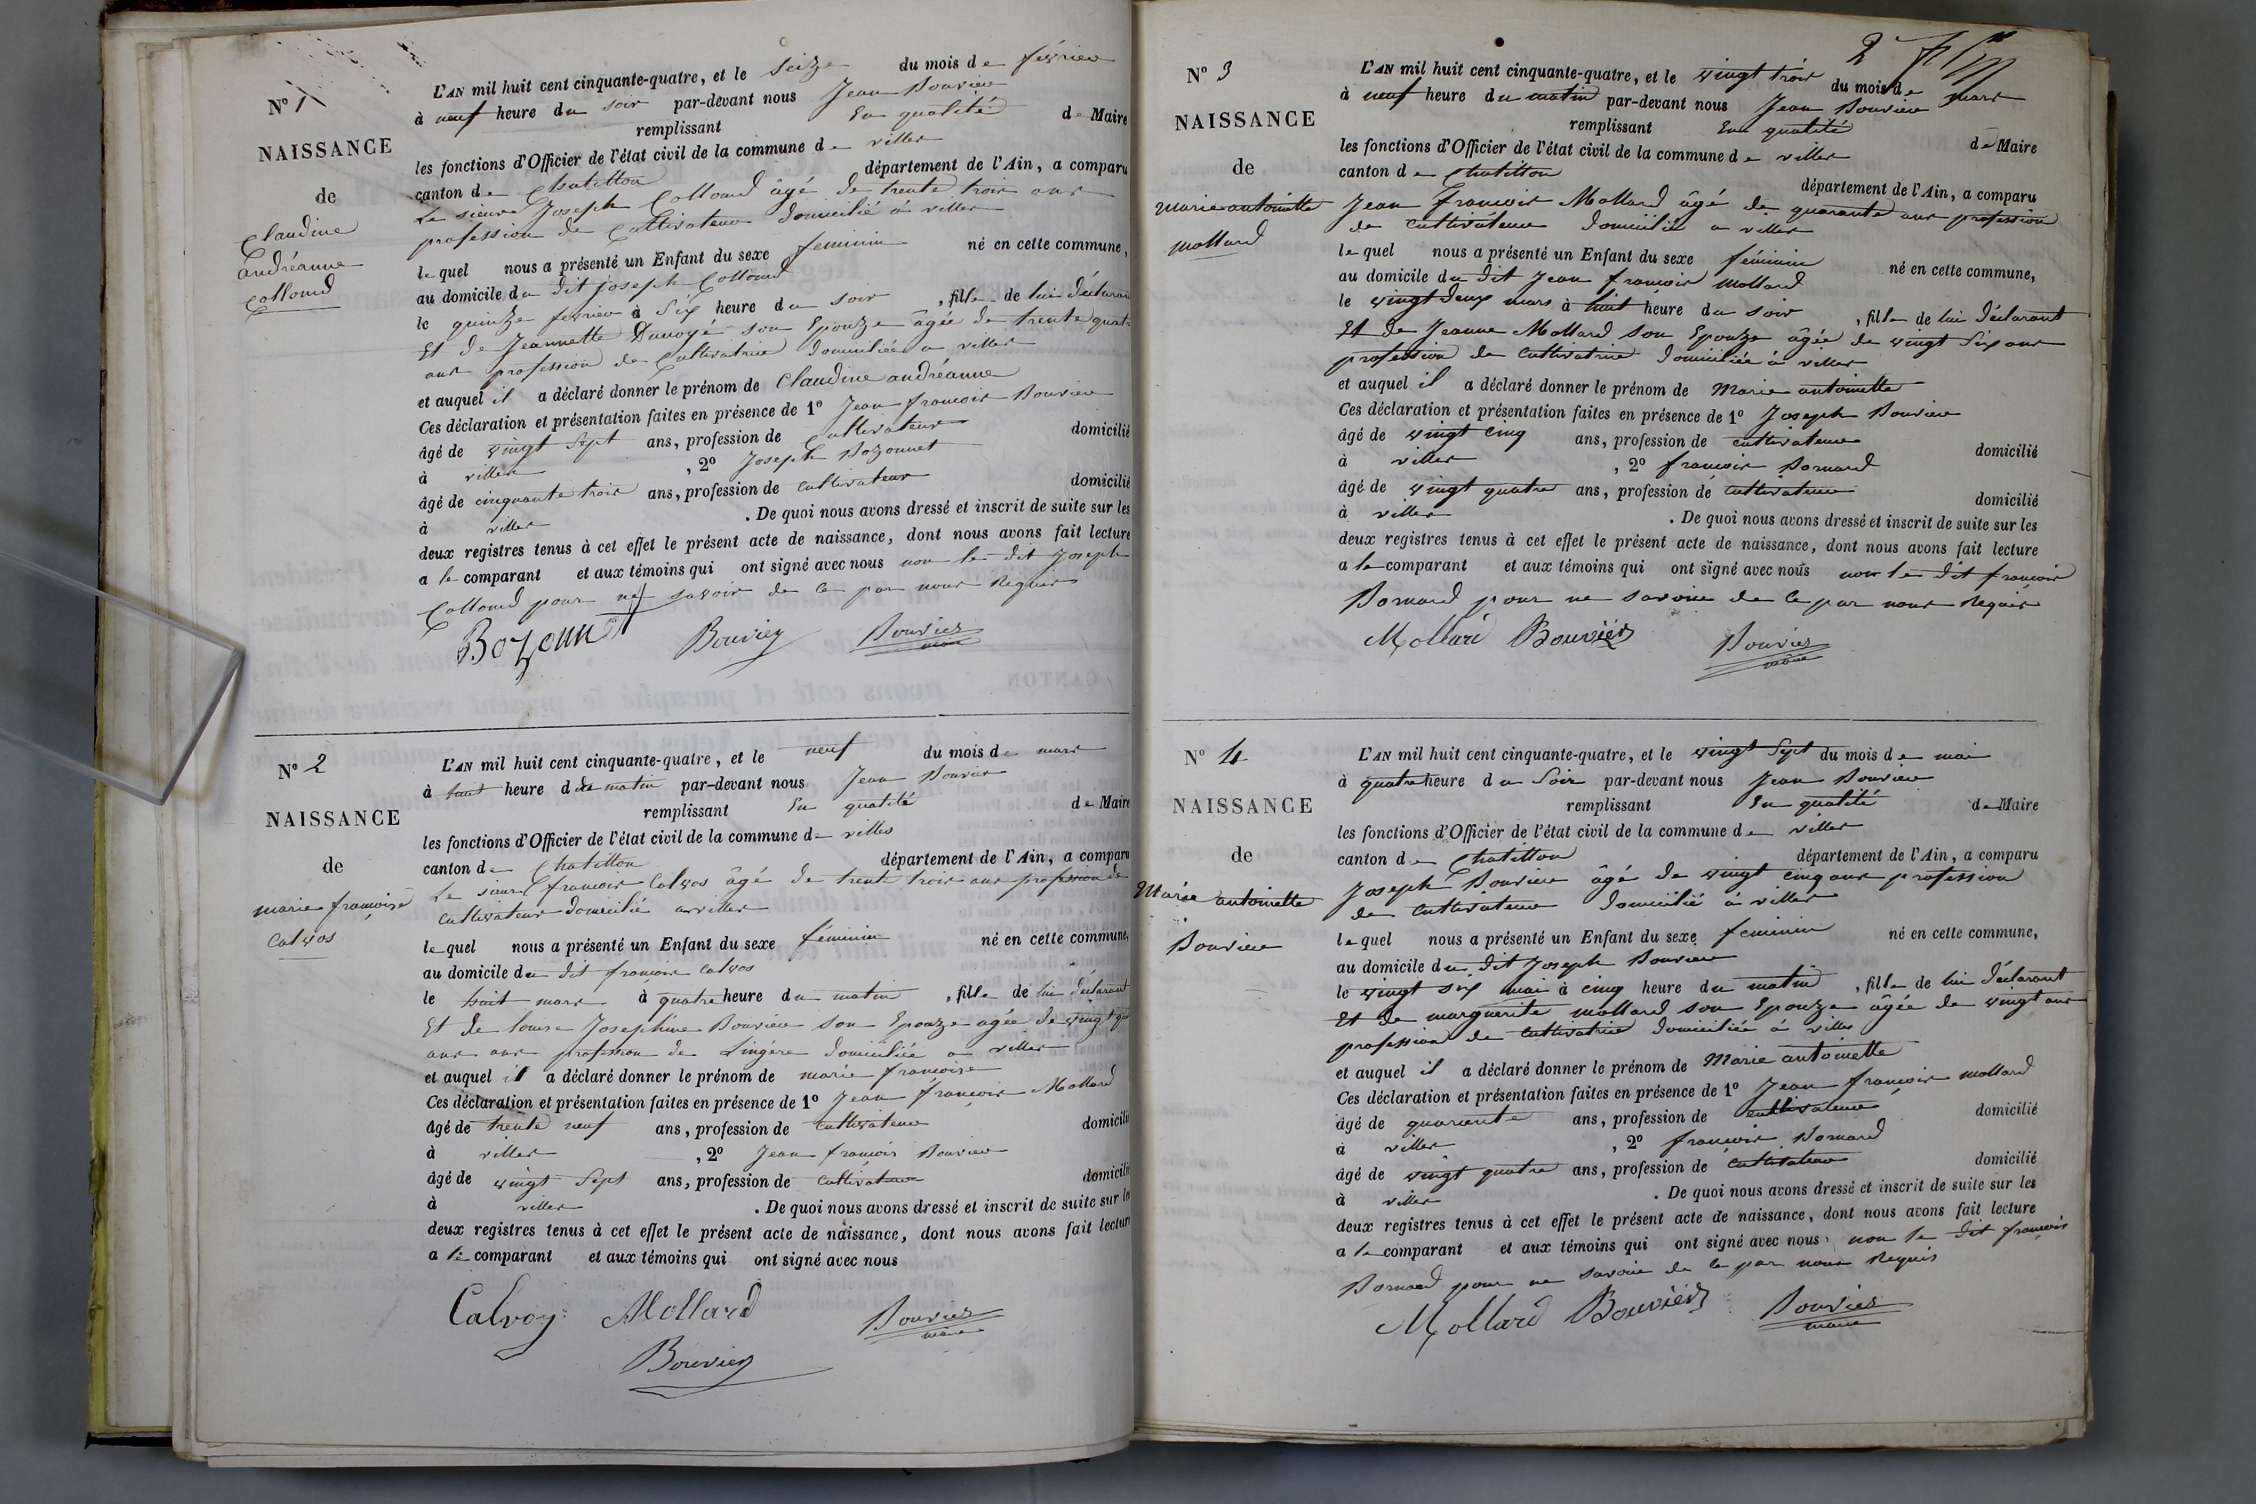 N° 1
NAISSANCE
de
Claudine
andréanne
Collomd
L'AN mil huit cent cinquante-quatre, et le Seize du mois de février
à neuf heure du soir par-devant nous Jean Bouvier
remplissant En qualité de Maire
les fonctions d'Officier de l'état civil de la commune de villes
canton de Chatillon département de l'Ain, a comparu
Le sieur Joseph Collomd âgé de trente trois ans
profession de Cultivateur domicilié à villes
lequel nous a présenté un Enfant du sexe feminin né en cette commune,
au domicile du dit joseph Collomd
le quinze fevrier à Six heure du soir , fille de lui déclarant
Et de Jeannette Dunoyé son Epouze âgée de trente quatre
ans profession de Cultivatrice domiciliée a villes
et auquel il a déclaré donner le prénom de Claudine andréanne
Ces déclaration et présentation faites en présence de 1° Jean françois Bouvier
âgé de vingt Sept ans, profession de Cultivateur domicilié
à villes , 2° Joseph Bozonnet
âgé de cinquante trois ans, profession de Cultivateur domicilié
à villes . De quoi nous avons dressé et inscrit de suite sur les
deux registres tenus à cet effet le présent acte de naissance, dont nous avons fait lecture
a le comparant et aux témoins qui ont signé avec nous non le dit Joseph
Collomd pour ne savoir de ce par nous Requis
Bozonnet Bouvier Bouvier
maire
N° 2
NAISSANCE
de
marie françoise
Calvos
L'AN mil huit cent cinquante-quatre, et le neuf du mois de mars
à huit heure du matin par-devant nous Jean Bouvier
remplissant En qualité de Maire
les fonctions d'Officier de l'état civil de la commune de villes
canton de Chatillon département de l'Ain, a comparu
Le sieur françois Calvos âgé de trente trois ans profession de
Cultivateur domicilié a villes
lequel nous a présenté un Enfant du sexe féminin né en cette commune,
au domicile du dit françois Calvos
le huit mars à quatre heure du matin , fille de lui déclarant
Et de louise Joséphine Bouvier son Epouze agée de vingt
ans ans profession de Lingère domiciliée a villes
et auquel il a déclaré donner le prénom de marie françoise
Ces déclaration et présentation faites en présence de 1° Jean françois Mollard
âgé de trente neuf ans, profession de Cultivateur domicilié
à villes , 2° Jean françois Bouvier
âgé de vingt Sept ans, profession de Cultivateur domicilié
à villes . De quoi nous avons dressé et inscrit de suite sur les
deux registres tenus à cet effet le présent acte de naissance, dont nous avons fait lecture
a le comparant et aux témoins qui ont signé avec nous
Calvoz Mollard Bouvier
maire
Bouvier
2
N° 3
NAISSANCE
de
marie antoinette
mollard
L'AN mil huit cent cinquante-quatre, et le vingt trois du mois de mars
à neuf heure du matin par-devant nous Jean Bouvier
remplissant En qualité de Maire
les fonctions d'Officier de l'état civil de la commune de villes
canton de Chatillon département de l'Ain, a comparu
Jean françois Mollard âgé de quarante ans profession
de Cultivateur domicilié a villes
lequel nous a présenté un Enfant du sexe féminin né en cette commune,
au domicile du dit Jean françois Mollard
le vingt deux mars à huit heure du soir , fille de lui déclarant
Et de Jeanne Mollard son Epouze âgée de vingt Six ans
profession de Cultivatrice domiciliée à villes
et auquel il a déclaré donner le prénom de Marie antoinette
Ces déclaration et présentation faites en présence de 1° Joseph Bouvier
âgé de vingt cinq ans, profession de cultivateur domicilié
à villes , 2° françois Bornard
âgé de vingt quatre ans, profession de cultivateur domicilié
à villes . De quoi nous avons dressé et inscrit de suite sur les
deux registres tenus à cet effet le présent acte de naissance, dont nous avons fait lecture
a le comparant et aux témoins qui ont signé avec nous non le dit françois
Bornard pour ne savoir de ce par nous Requis
Mollard Bouvier Bouvier
maire
N° 4
NAISSANCE
de
Marie antoinette
Bouvier
L'AN mil huit cent cinquante-quatre, et le vingt Sept du mois de mai
à quatre heure du Soir par-devant nous Jean Bouvier
remplissant En qualité de Maire
les fonctions d'Officier de l'état civil de la commune de villes
canton de Chatillon département de l'Ain, a comparu
Joseph Bouvier âgé de vingt cinq ans profession
de Cultivateur domicilié à villes
lequel nous a présenté un Enfant du sexe feminin né en cette commune,
au domicile du dit Joseph Bouvier
le vingt six mai à cinq heure du matin , fille de lui déclarant
Et de marguerite mollard son Epouze âgée de vingt ans
profession de Cultivatrice domiciliée à villes
et auquel il a déclaré donner le prénom de Marie antoinette
Ces déclaration et présentation faites en présence de 1° Jean françois mollard
âgé de quarante ans, profession de cultivateur domicilié
à villes , 2° françois Bornard
âgé de vingt quatre ans, profession de Cultivateur domicilié
à villes . De quoi nous avons dressé et inscrit de suite sur les
deux registres tenus à cet effet le présent acte de naissance, dont nous avons fait lecture
a le comparant et aux témoins qui ont signé avec nous non le dit françois
Bornard pour ne savoir de ce par nous Requis
Mollard Bouvier Bouvier
maire